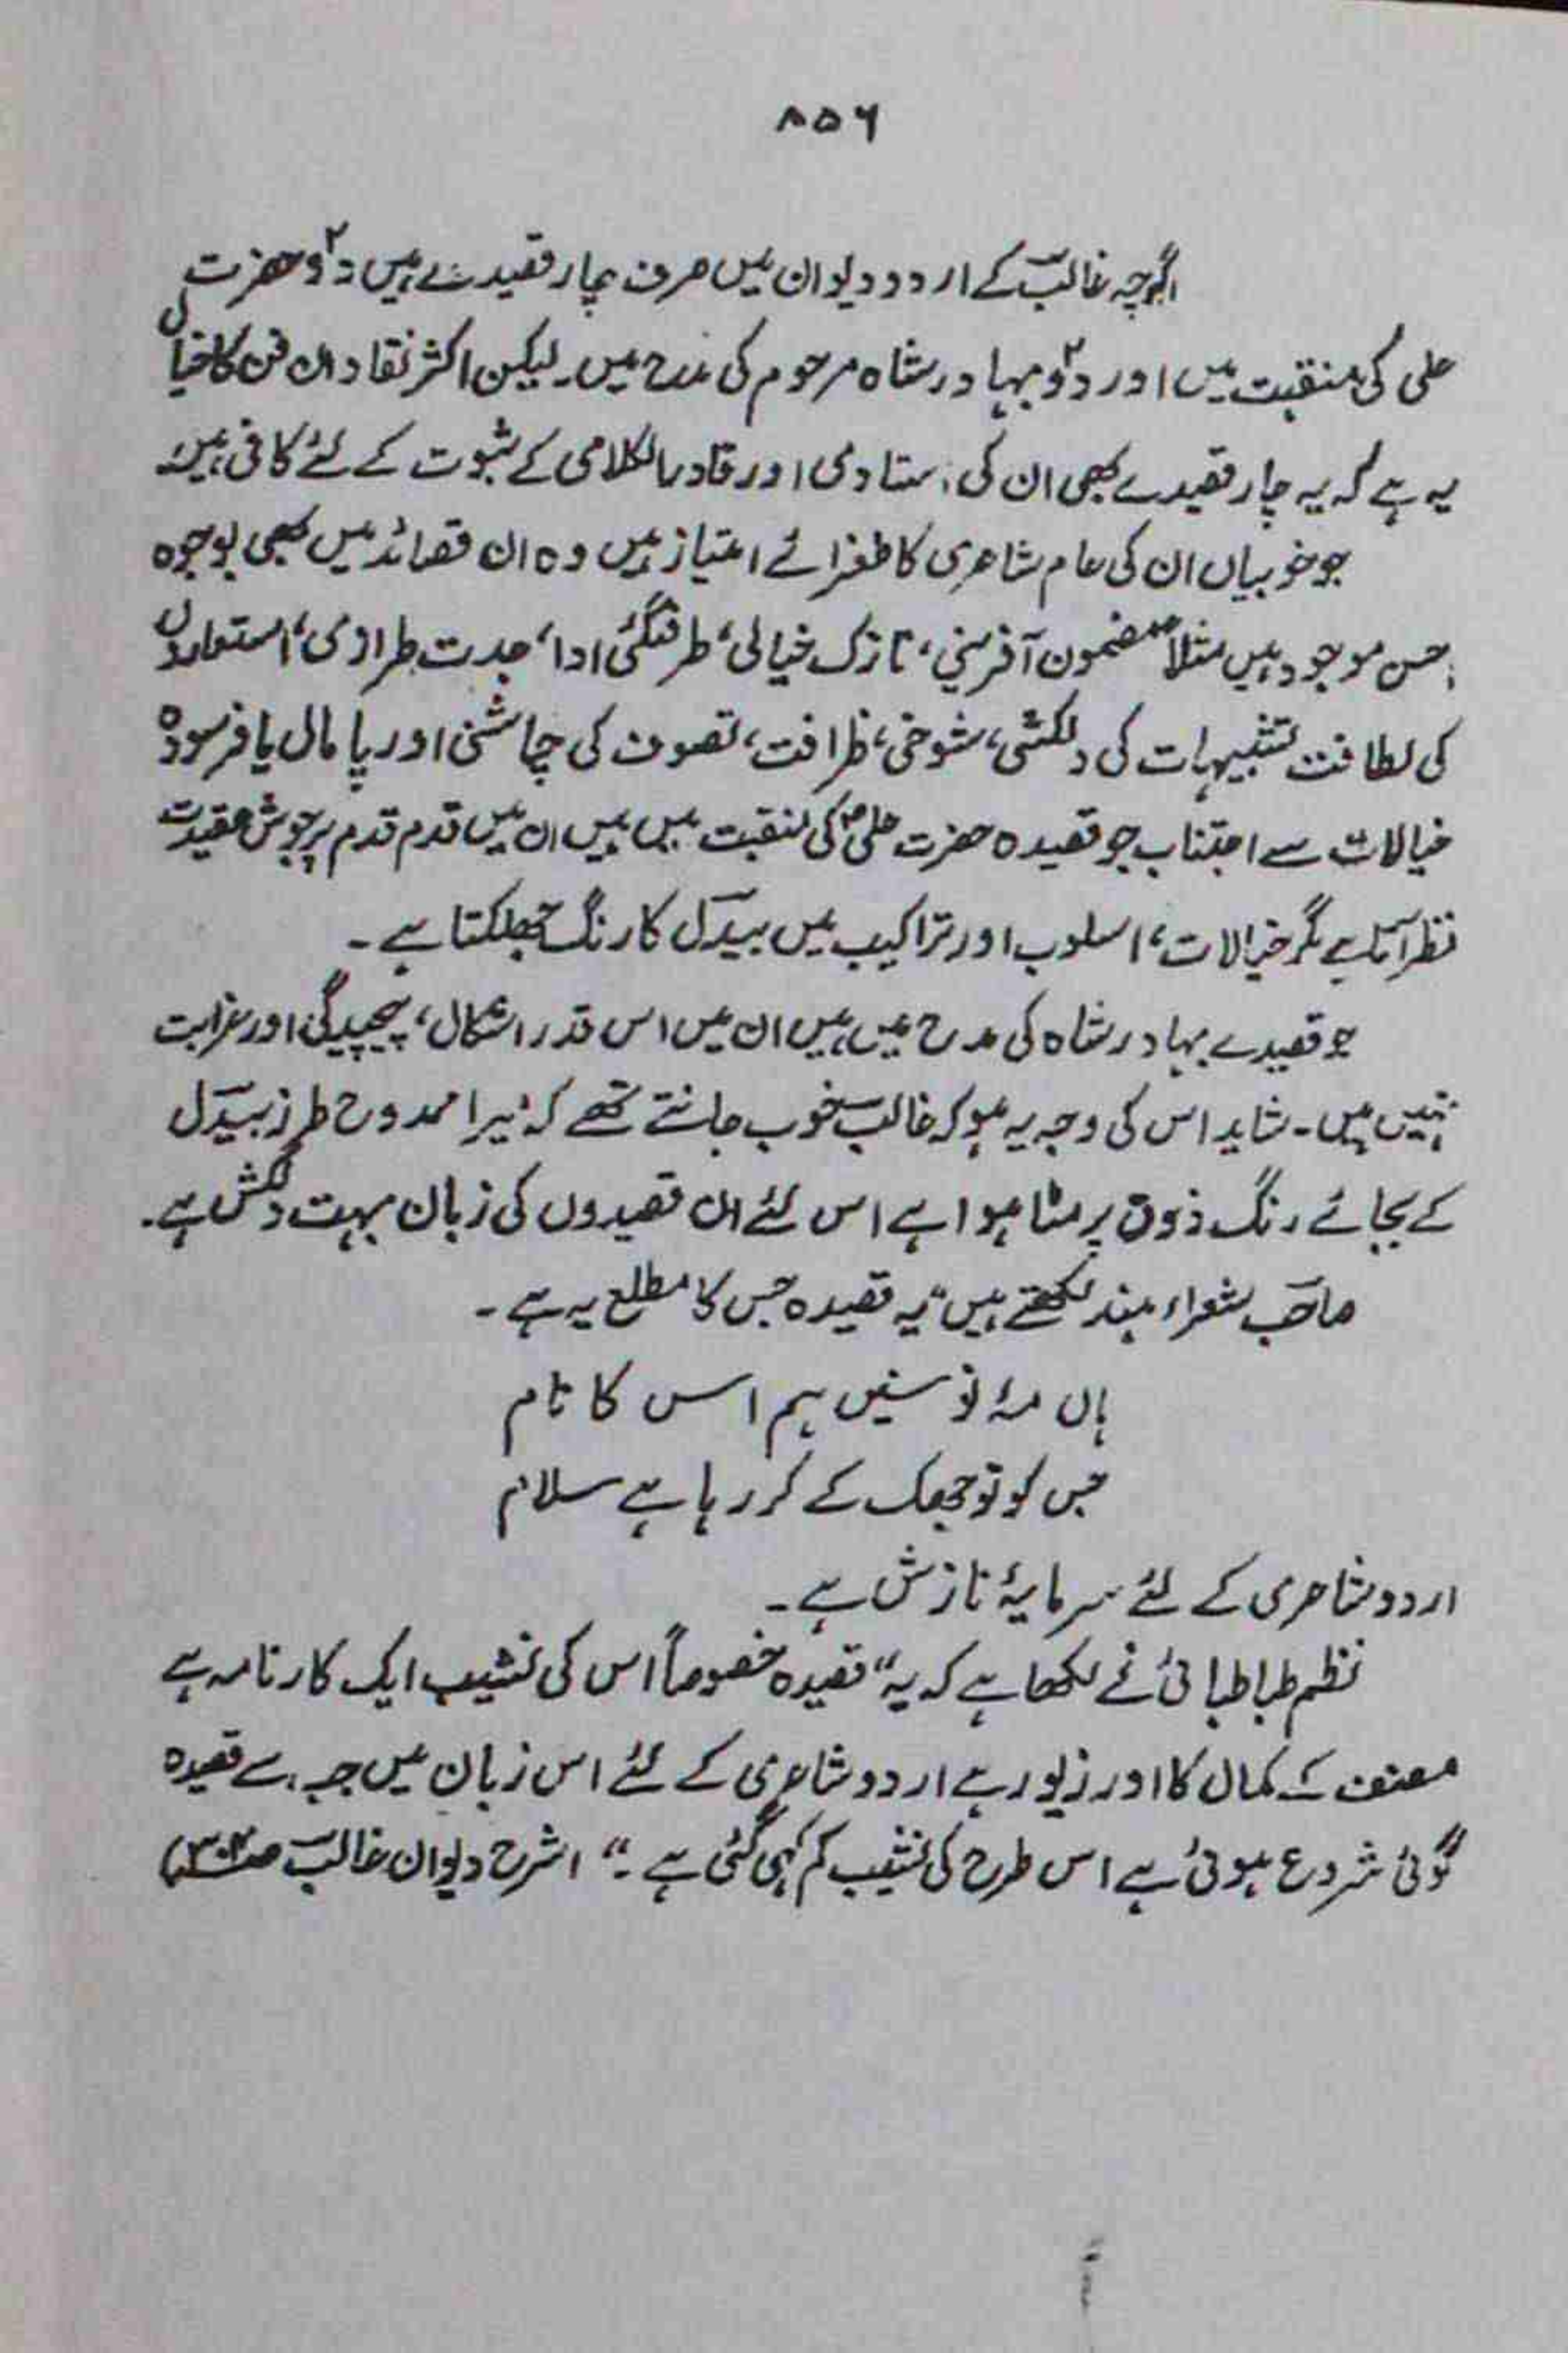 ۸۵۶
اگرچہ غالبؔ کے اردو دیوان میں صرف چار قصیدے ہیں دو۲ حضرت
علی کی منقبت میں اور دو۲ بہادر شاہ مرحوم کی مدح میں۔ لیکن اکثر نقادان فن کا خیال
یہ ہے کہ یہ چار قصیدے بھی ان کی استادی اور قادر الکلامی کے ثبوت کے لئے کافی ہیں۔
جو خوبیاں ان کی عام شاعری کا طغرائے امتیاز ہیں وہ ان قصائد میں بھی بوجوہ
احسن موجود ہیں مثلاً مضمون آفرینی، نازک خیالی، طرفگئی ادا، جدت طرازی، استعاروں
کی لطافت تشبیہات کی دلکشی، شوخی، ظرافت، تصوف کی چاشنی اور پامال یا فرسودہ
خیالات سے اجتناب جو قصیدہ حضرت علیؓ کی منقبت میں ہیں ان میں قدم قدم پر جوش عقیدت
نظر آتا ہے مگر خیالات، اسلوب اور تراکیب میں بیدلؔ کا رنگ جھلکتا ہے۔
جو قصیدے بہادر شاہ کی مدح میں ہیں ان میں اس قدر اشکال، پیچیدگی اور غرابت
نہیں ہیں۔ شاید اس کی وجہ یہ ہو کہ غالبؔ خوب جانتے تھے کہ میرا ممدوح طرز بیدلؔ
کے بجائے رنگ ذوق پر مٹا ہوا ہے اس لئے ان قصیدوں کی زبان بہت دلکش ہے۔
صاحب شعراء ہند لکھتے ہیں "یہ قصیدہ جس کا مطلع یہ ہے۔
ہاں مۂ نو سنیں ہم اس کا نام
جس کو تو جھک کے کر رہا ہے سلام
اردو شاعری کے لئے سرمایۂ نازش ہے۔
نظم طباطبائی نے لکھا ہے کہ یہ "قصیدہ خصوصاً اس کی تشبیب ایک کارنامہ ہے
مصنف کے کمال کا اور زیور ہے اردو شاعری کے لئے اس زبان میں جب سے قصیدہ
گوئی شروع ہوئی ہے اس طرح کی تشبیب کم کہی گئی ہے۔" (شرح دیوان غالبؔ